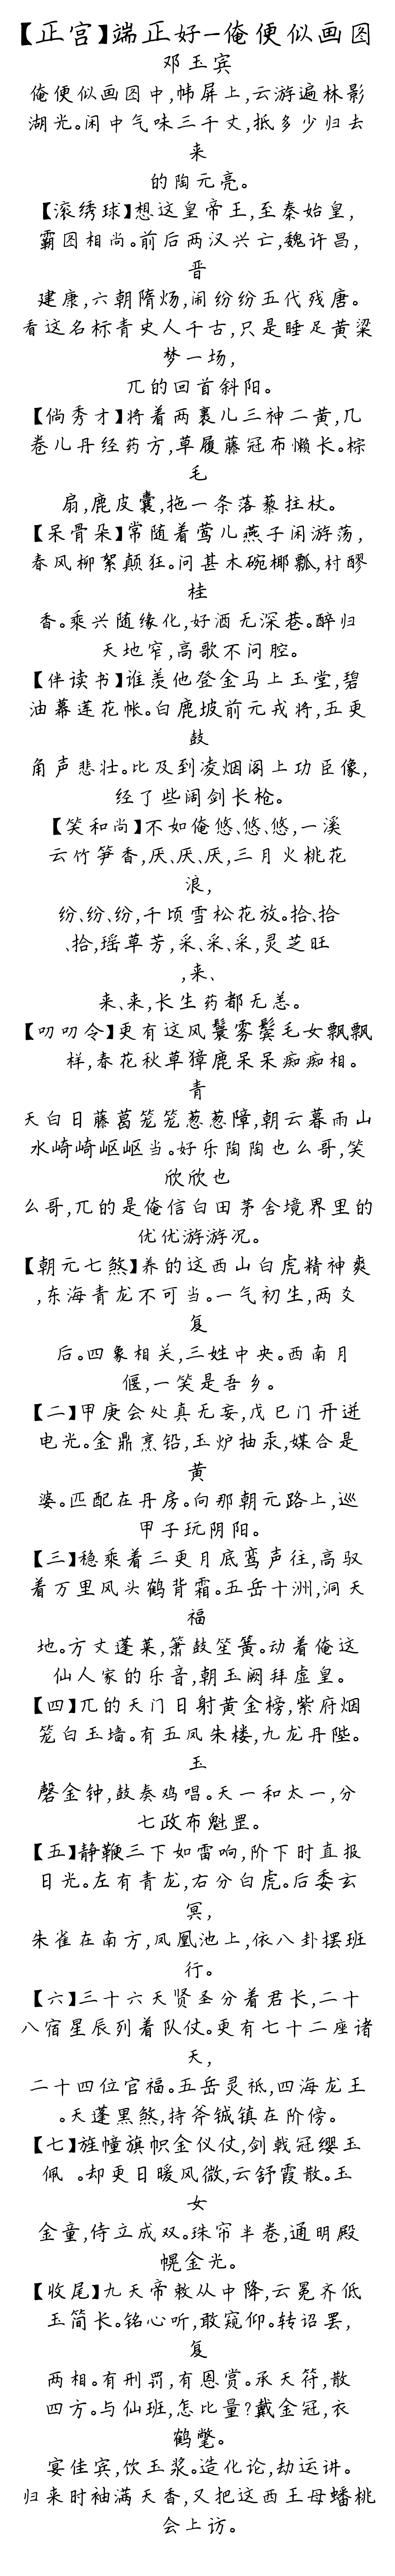 【正宫】端正好-俺便似画图
邓玉宾
俺便似画图中,帏屏上,云游遍林影
湖光。闲中气味三千丈,抵多少归去
来
的陶元亮。
【滚绣球】想这皇帝王,至秦始皇,
霸图相尚。前后两汉兴亡,魏许昌,
晋
建康,六朝隋炀,闹纷纷五代残唐。
看这名标青史人千古,只是睡足黄粱
梦一场,
兀的回首斜阳。
【倘秀才】将着两裹儿三神二黄,几
卷儿丹经药方,草履藤冠布懒长。棕
毛
扇,鹿皮囊,拖一条落藜拄杖。
【呆骨朵】常随着莺儿燕子闲游荡,
春风柳絮颠狂。问甚木碗椰瓢,村醪
桂
香。乘兴随缘化,好酒无深巷。醉归
天地窄,高歌不问腔。
【伴读书】谁羡他登金马上玉堂,碧
油幕莲花帐。白鹿坡前元戎将,五更
鼓
角声悲壮。比及到凌烟阁上功臣像,
经了些阔剑长枪。
【笑和尚】不如俺悠、悠、悠,一溪
云竹笋香,厌、厌、厌,三月火桃花
浪,
纷、纷、纷,千顷雪松花放。拾、拾
、拾,瑶草芳,采、采、采,灵芝旺
,来、
来、来,长生药都无恙。
【叨叨令】更有这风鬟雾鬓毛女飘飘
样,春花秋草獐鹿呆呆痴痴相。
青
天白日藤葛笼笼葱葱障,朝云暮雨山
水崎崎岖岖当。好乐陶陶也么哥,笑
欣欣也
么哥,兀的是俺信白田茅舍境界里的
优优游游况。
【朝元七煞】养的这西山白虎精神爽
,东海青龙不可当。一气初生,两爻
复
后。四象相关,三姓中央。西南月
偃,一笑是吾乡。
【二】甲庚会处真无妄,戊巳门开迸
电光。金鼎烹铅,玉炉抽汞,媒合是
黄
婆。匹配在丹房。向那朝元路上,巡
甲子玩阴阳。
【三】稳乘着三更月底鸾声往,高驭
着万里风头鹤背霜。五岳十洲,洞天
福
地。方丈蓬莱,箫鼓笙簧。动着俺这
仙人家的乐音,朝玉阙拜虚皇。
【四】兀的天门日射黄金榜,紫府烟
笼白玉墙。有五凤朱楼,九龙丹陛。
玉
磬金钟,鼓奏鸡唱。天一和太一,分
七政布魁罡。
【五】静鞭三下如雷响,阶下时直报
日光。左有青龙,右分白虎。后委玄
冥,
朱雀在南方,凤凰池上,依八卦摆班
行。
【六】三十六天贤圣分着君长,二十
八宿星辰列着队仗。更有七十二座诸
天,
二十四位官福。五岳灵祇,四海龙王
。天蓬黑煞,持斧钺镇在阶傍。
【七】旌幢旗帜金仪仗,剑戟冠缨玉
佩 。却更日暖风微,云舒霞散。玉
女
金童,侍立成双。珠帘半卷,通明殿
幌金光。
【收尾】九天帝敕从中降,云冕齐低
玉简长。铭心听,敢窥仰。转诏罢,
复
两相。有刑罚,有恩赏。承天符,散
四方。与仙班,怎比量?戴金冠,衣
鹤氅。
宴佳宾,饮玉浆。造化论,劫运讲。
归来时袖满天香,又把这西王母蟠桃
会上访。